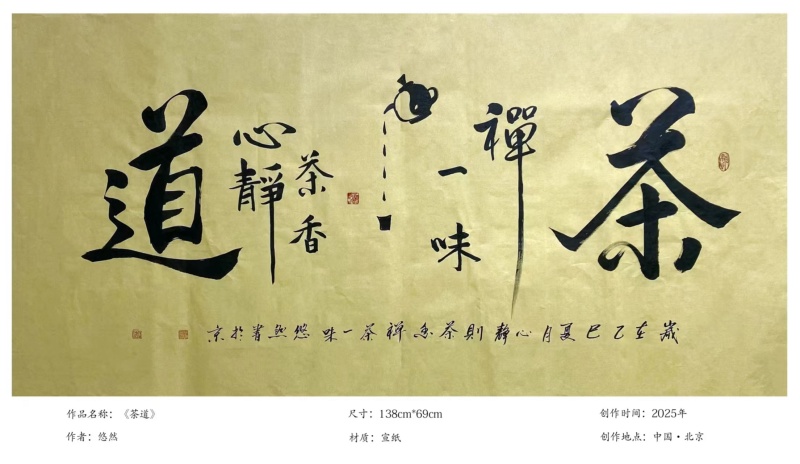 茶
禪
一味
茶香
心靜
道
歲在乙巳夏月心靜則茶香禪茶一味悠然書於京
作品名称：《茶道》
尺寸：138cm*69cm
创作时间：2025年
作者：悠然
材质：宣纸
创作地点：中国·北京